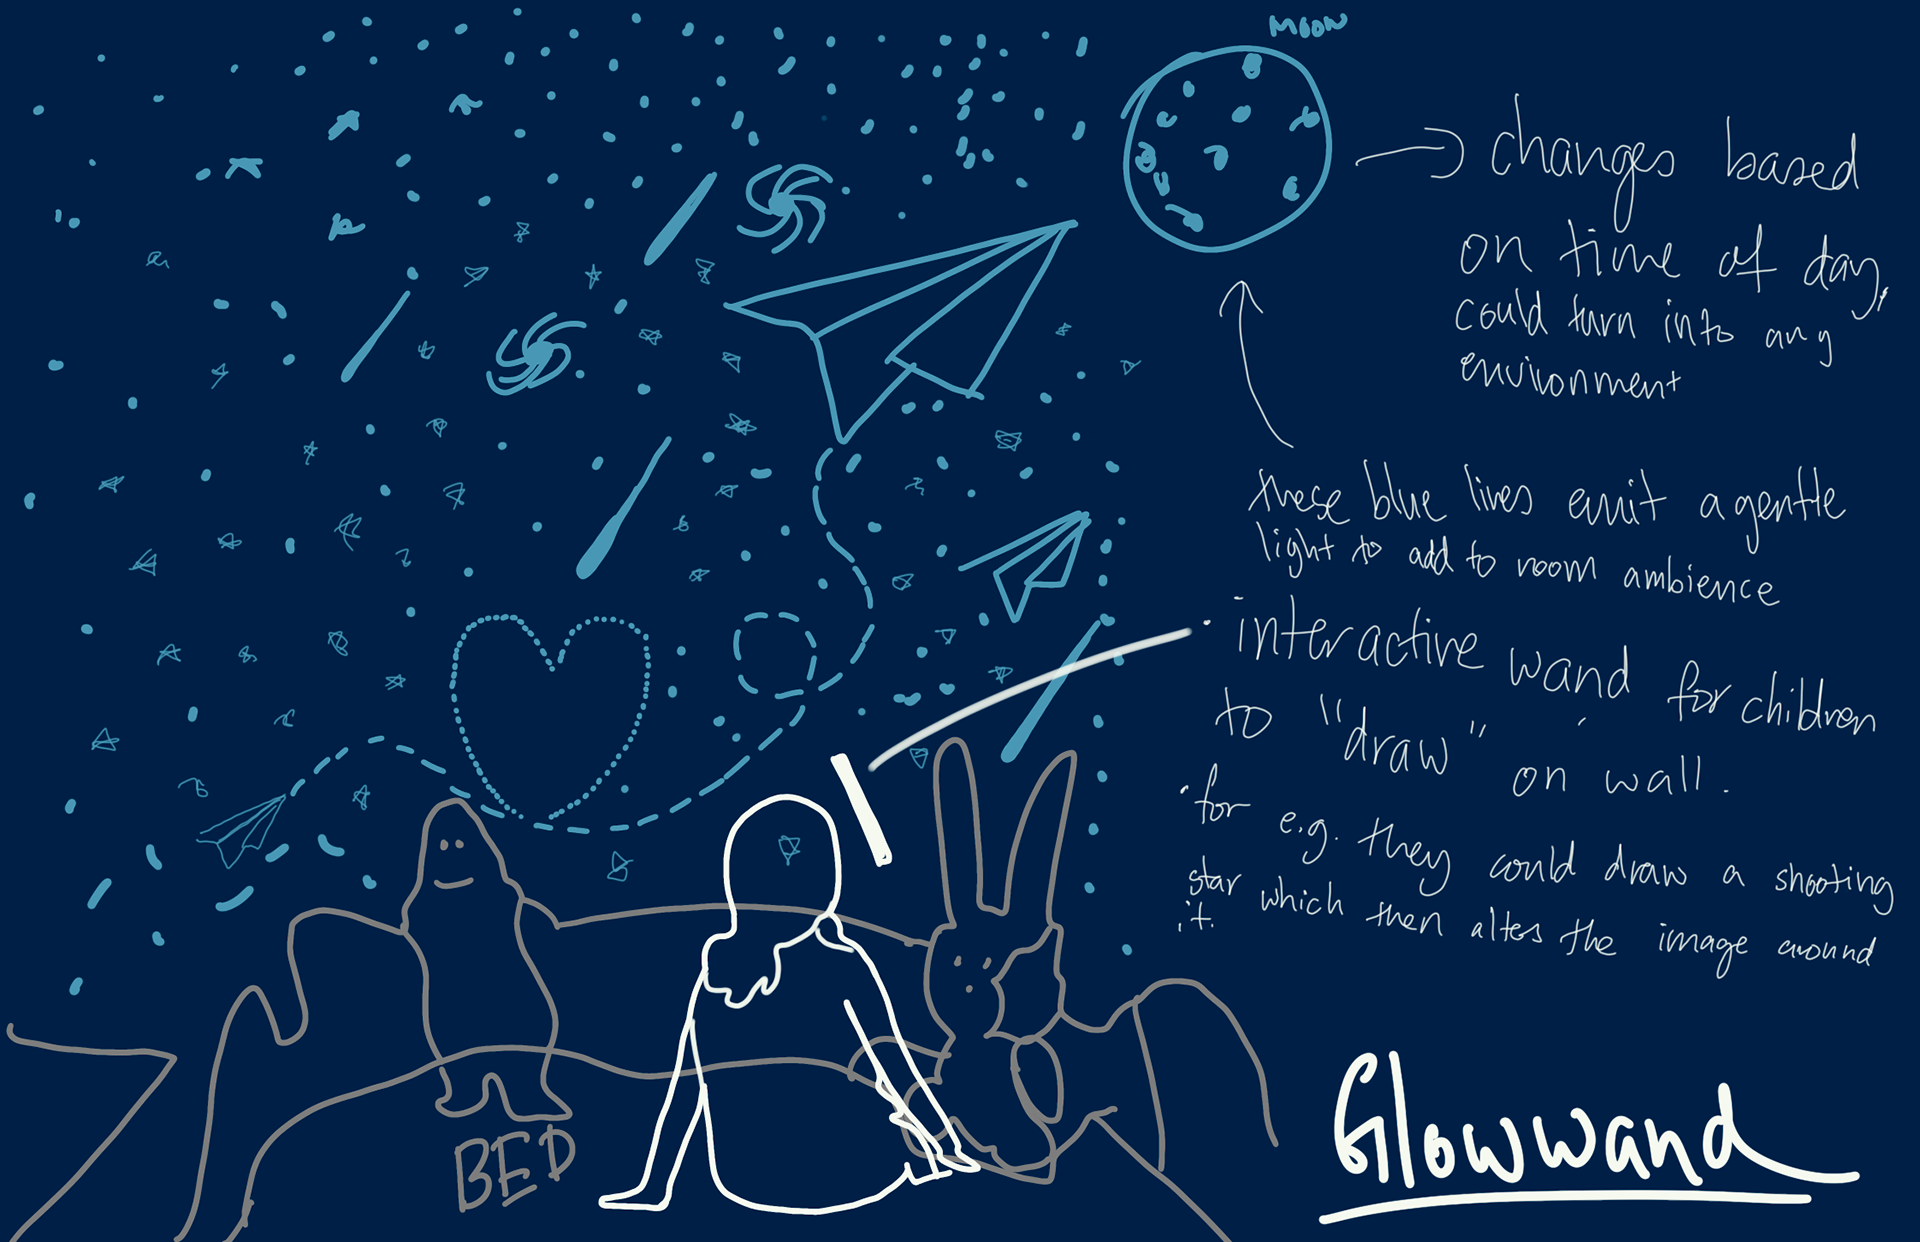 MOON
changes based
on time of day,
could turn into any
environment
these blue lines emit a gentle
light to add to room ambience
• interactive wand for children
to "draw" on wall.
• for e.g. they could draw a shooting
star which then alters the image around
it.
BED
Glowwand